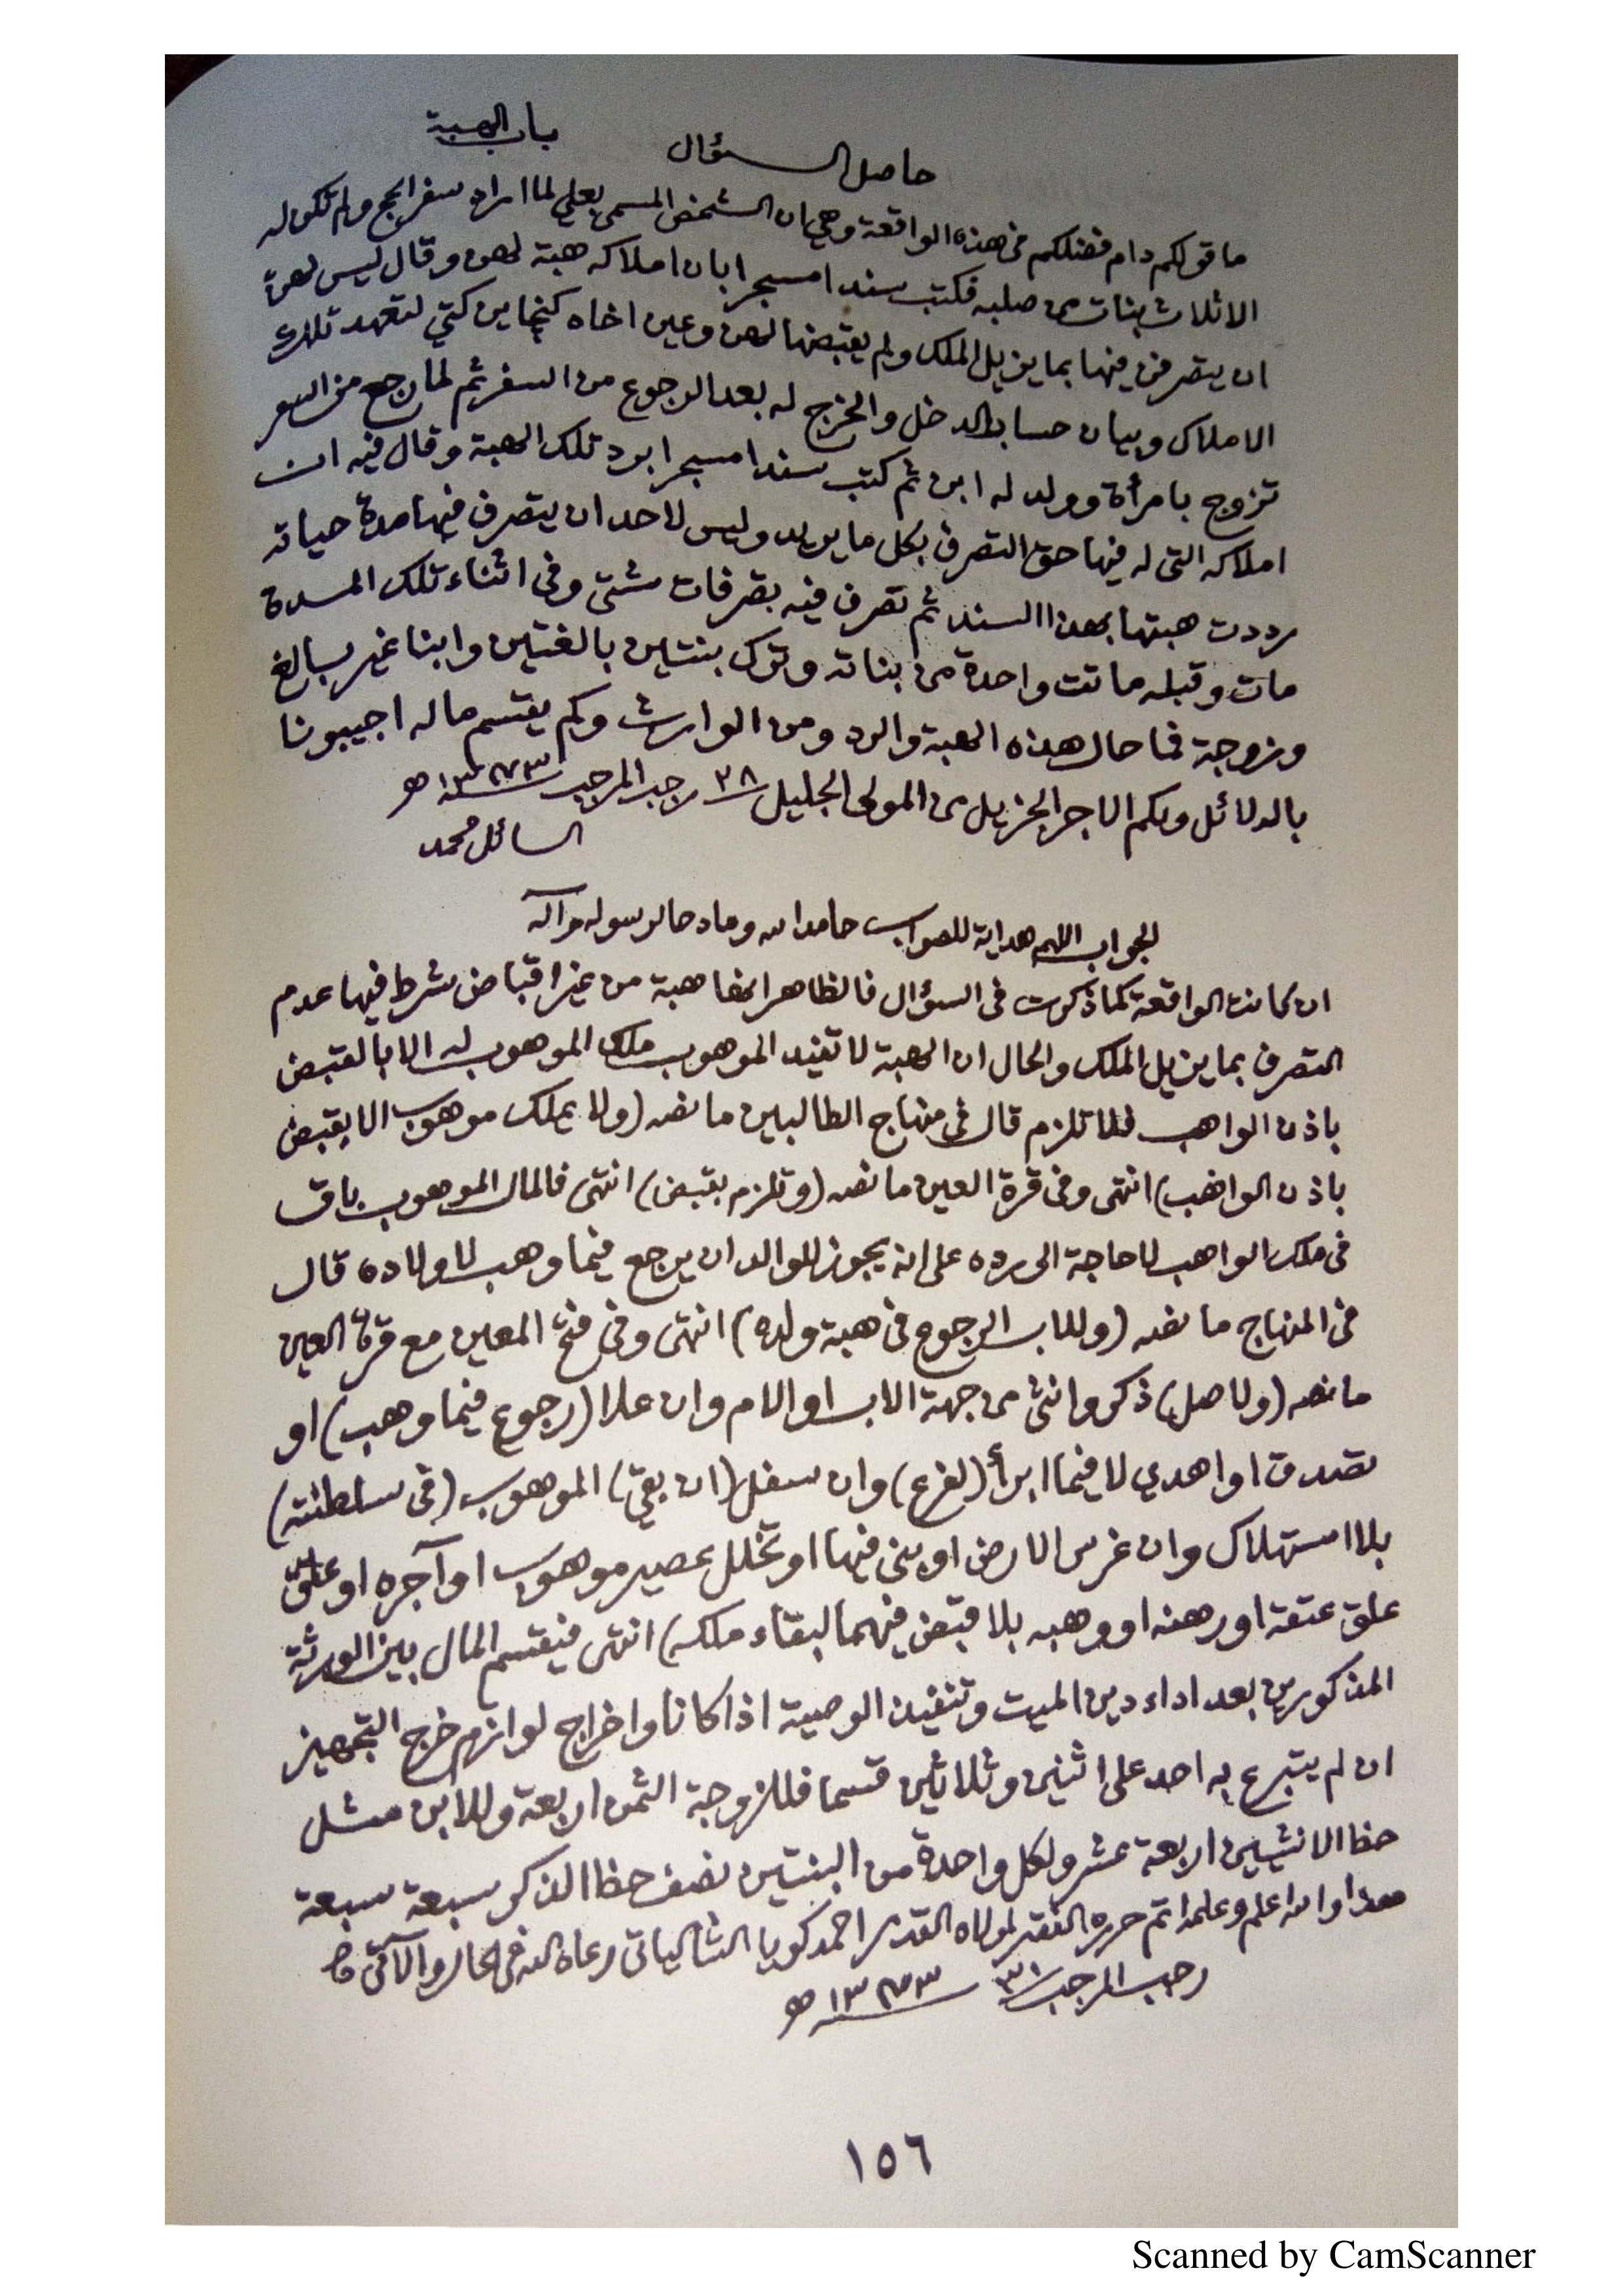 باب الهبة
حاصل السؤال
ما قولكم دام فضلكم في هذه الواقعة وهي ان الشخص المسمى بعلي لما اراد سفر الحج ولم تكن له
الا ثلاث بنات من صلبه فكتب سندا مسجرا بان املاكه هبة لهن وقال ليس لهن
ان يتصرفن فيها بما يزيل الملك ولم يقبضها لهن وعين اخاه كنجاين كتي لتعهد تلك
الاملاك وبيان حساب الدخل والخرج له بعد الرجوع من السفر ثم لما رجع من السفر
تزوج بامرأة وولد له ابن ثم كتب سندا مسجرا برد تلك الهبة وقال فيه ان
املاكه التي له فيها حق التصرف بكل ما يريد وليس لاحد ان يتصرف فيها مدة حياته
رددت هبتها بهذا السند ثم تصرف فيه بتصرفات شتى وفي اثناء تلك المدة
مات وقبله ماتت واحدة من بناته وترك بنتين بالغتين وابنا غير بالغ
وزوجة فما حال هذه الهبة والرد ومن الوارث وكم يقتسم ماله اجيبونا
بالدلائل ولكم الاجر الجزيل من المولى الجليل ٢٨ رجب المرجب ١٣٧٣ ه
السائل محمد
الجواب اللهم هداية للصواب حامدا لله ومادحا لرسوله وآله
ان كانت الواقعة كما ذكرت في السؤال فالظاهر انها هبة من غير اقباض شرط فيها عدم
التصرف بما يزيل الملك والحال ان الهبة لا تفيد الموهوب ملك الموهوب له الا بالقبض
باذن الواهب فلا تلزم قال في منهاج الطالبين ما نصه (ولا يملك موهوب الا بقبض
باذن الواهب) انتهى وفي قرة العين ما نصه (وتلزم بقبض) انتهى فالمال الموهوب باق
في ملك الواهب لا حاجة الى رده على انه يجوز للوالد ان يرجع فيما وهب لاولاده قال
في المنهاج ما نصه (وللاب الرجوع في هبة ولده) انتهى وفي فتح المعين مع قرة العين
ما نصه (ولاصل) ذكر وانثى من جهة الاب او الام وان علا (رجوع فيما وهب) او
تصدق او اهدي لا فيما ابرأ (لفرع) وان سفل (ان بقي) الموهوب (في سلطنته)
بلا استهلاك وان غرس الارض او بنى فيها او تخلل عصير موهوب او آجره او علق
علق عتقه او رهنه او وهبه بلا قبض فيهما لبقاء ملكه) انتهى فيقتسم المال بين الورثة
المذكورين بعد اداء دين الميت وتنفيذ الوصية اذا كانا واخراج لوازم خرج التجهيز
ان لم يتبرع به احد على اثنين وثلاثين قسما فللزوجة الثمن اربعة وللابن مثل
حظ الانثيين اربعة عشر ولكل واحدة من البنتين نصف حظ الذكر سبعة سبعة
هذا والله اعلم وعلمه اتم حرره الفقير لمولاه القدير احمد كويا الشالياتي رعاه الله في الحال والآتي
رجب المرجب ٣١ ١٣٧٣ ه
١٥٦
Scanned by CamScanner